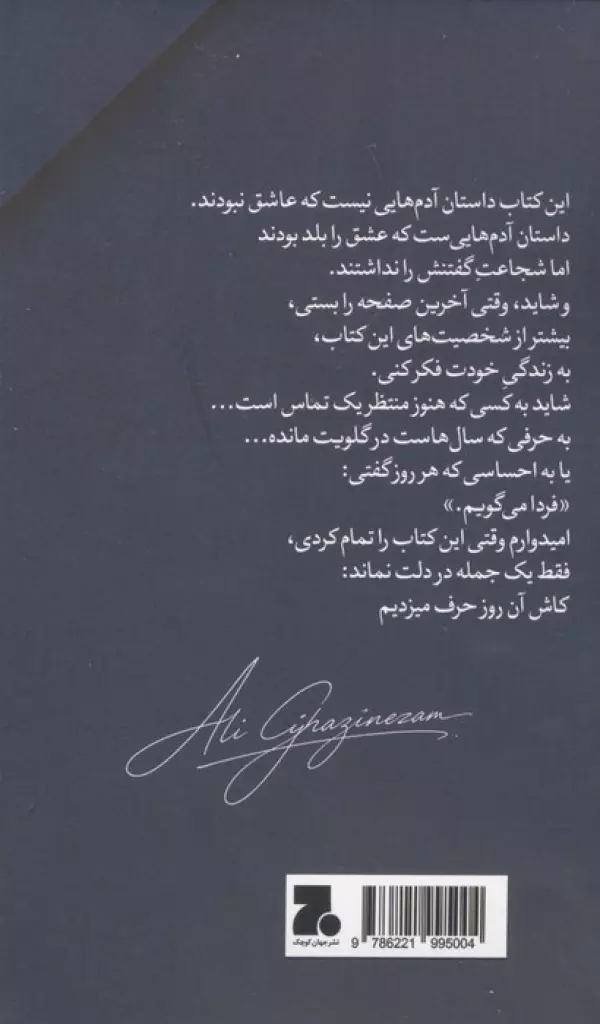 این کتاب داستان آدم‌هایی نیست که عاشق نبودند.
داستان آدم‌هایی‌ست که عشق را بلد بودند
اما شجاعتِ گفتنش را نداشتند.
و شاید، وقتی آخرین صفحه را بستی،
بیشتر از شخصیت‌های این کتاب،
به زندگیِ خودت فکر کنی.
شاید به کسی که هنوز منتظر یک تماس است...
به حرفی که سال‌هاست در گلویت مانده...
یا به احساسی که هر روز گفتی:
«فردا می‌گویم.»
امیدوارم وقتی این کتاب را تمام کردی،
فقط یک جمله در دلت نماند:
کاش آن روز حرف میزدیم
Ali Ghazinezam
نشر جهان کوچک
9 786221 995004